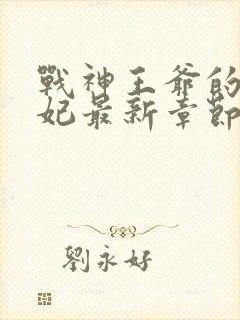 戰神王爺的
妃最新章節
劉永好